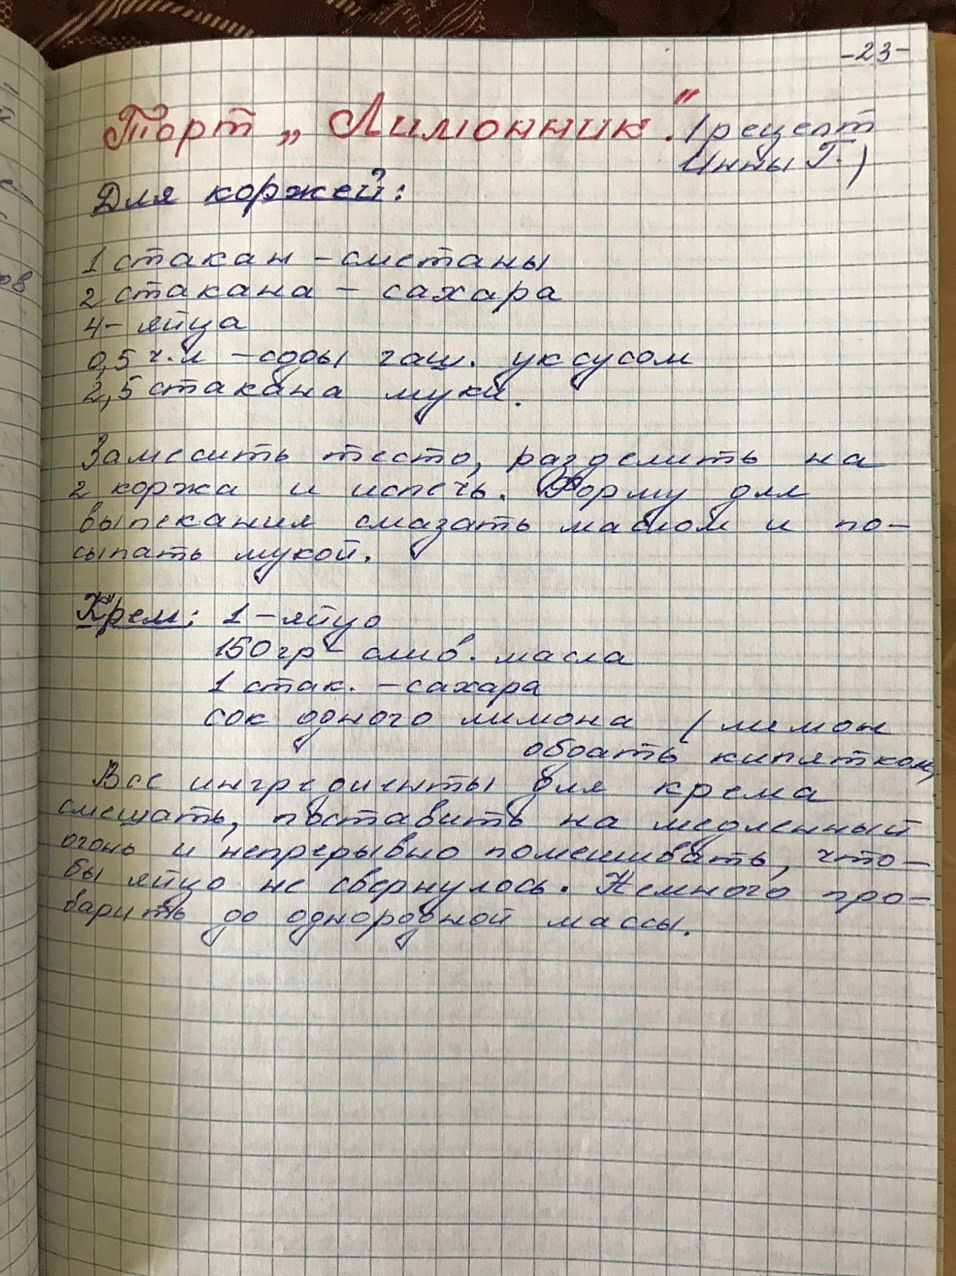 -23-
Торт „Лимонник." /рецепт
Инны Г.)
Для коржей:
1 стакан - сметаны
2 стакана - сахара
4 - яйца
0,5 ч.л - соды гаш. уксусом
2,5 стакана муки.
Замесить тесто, разделить на
2 коржа и испечь. Форму для
выпекания смазать маслом и по-
сыпать мукой.
Крем: 1 - яйцо
150 гр - слив. масла
1 стак. - сахара
сок одного лимона /лимон
обдать кипятком,
Все ингредиенты для крема
смешать, поставить на медленный
огонь и непрерывно помешивать, что-
бы яйцо не свернулось. Немного про-
варить до однородной массы.